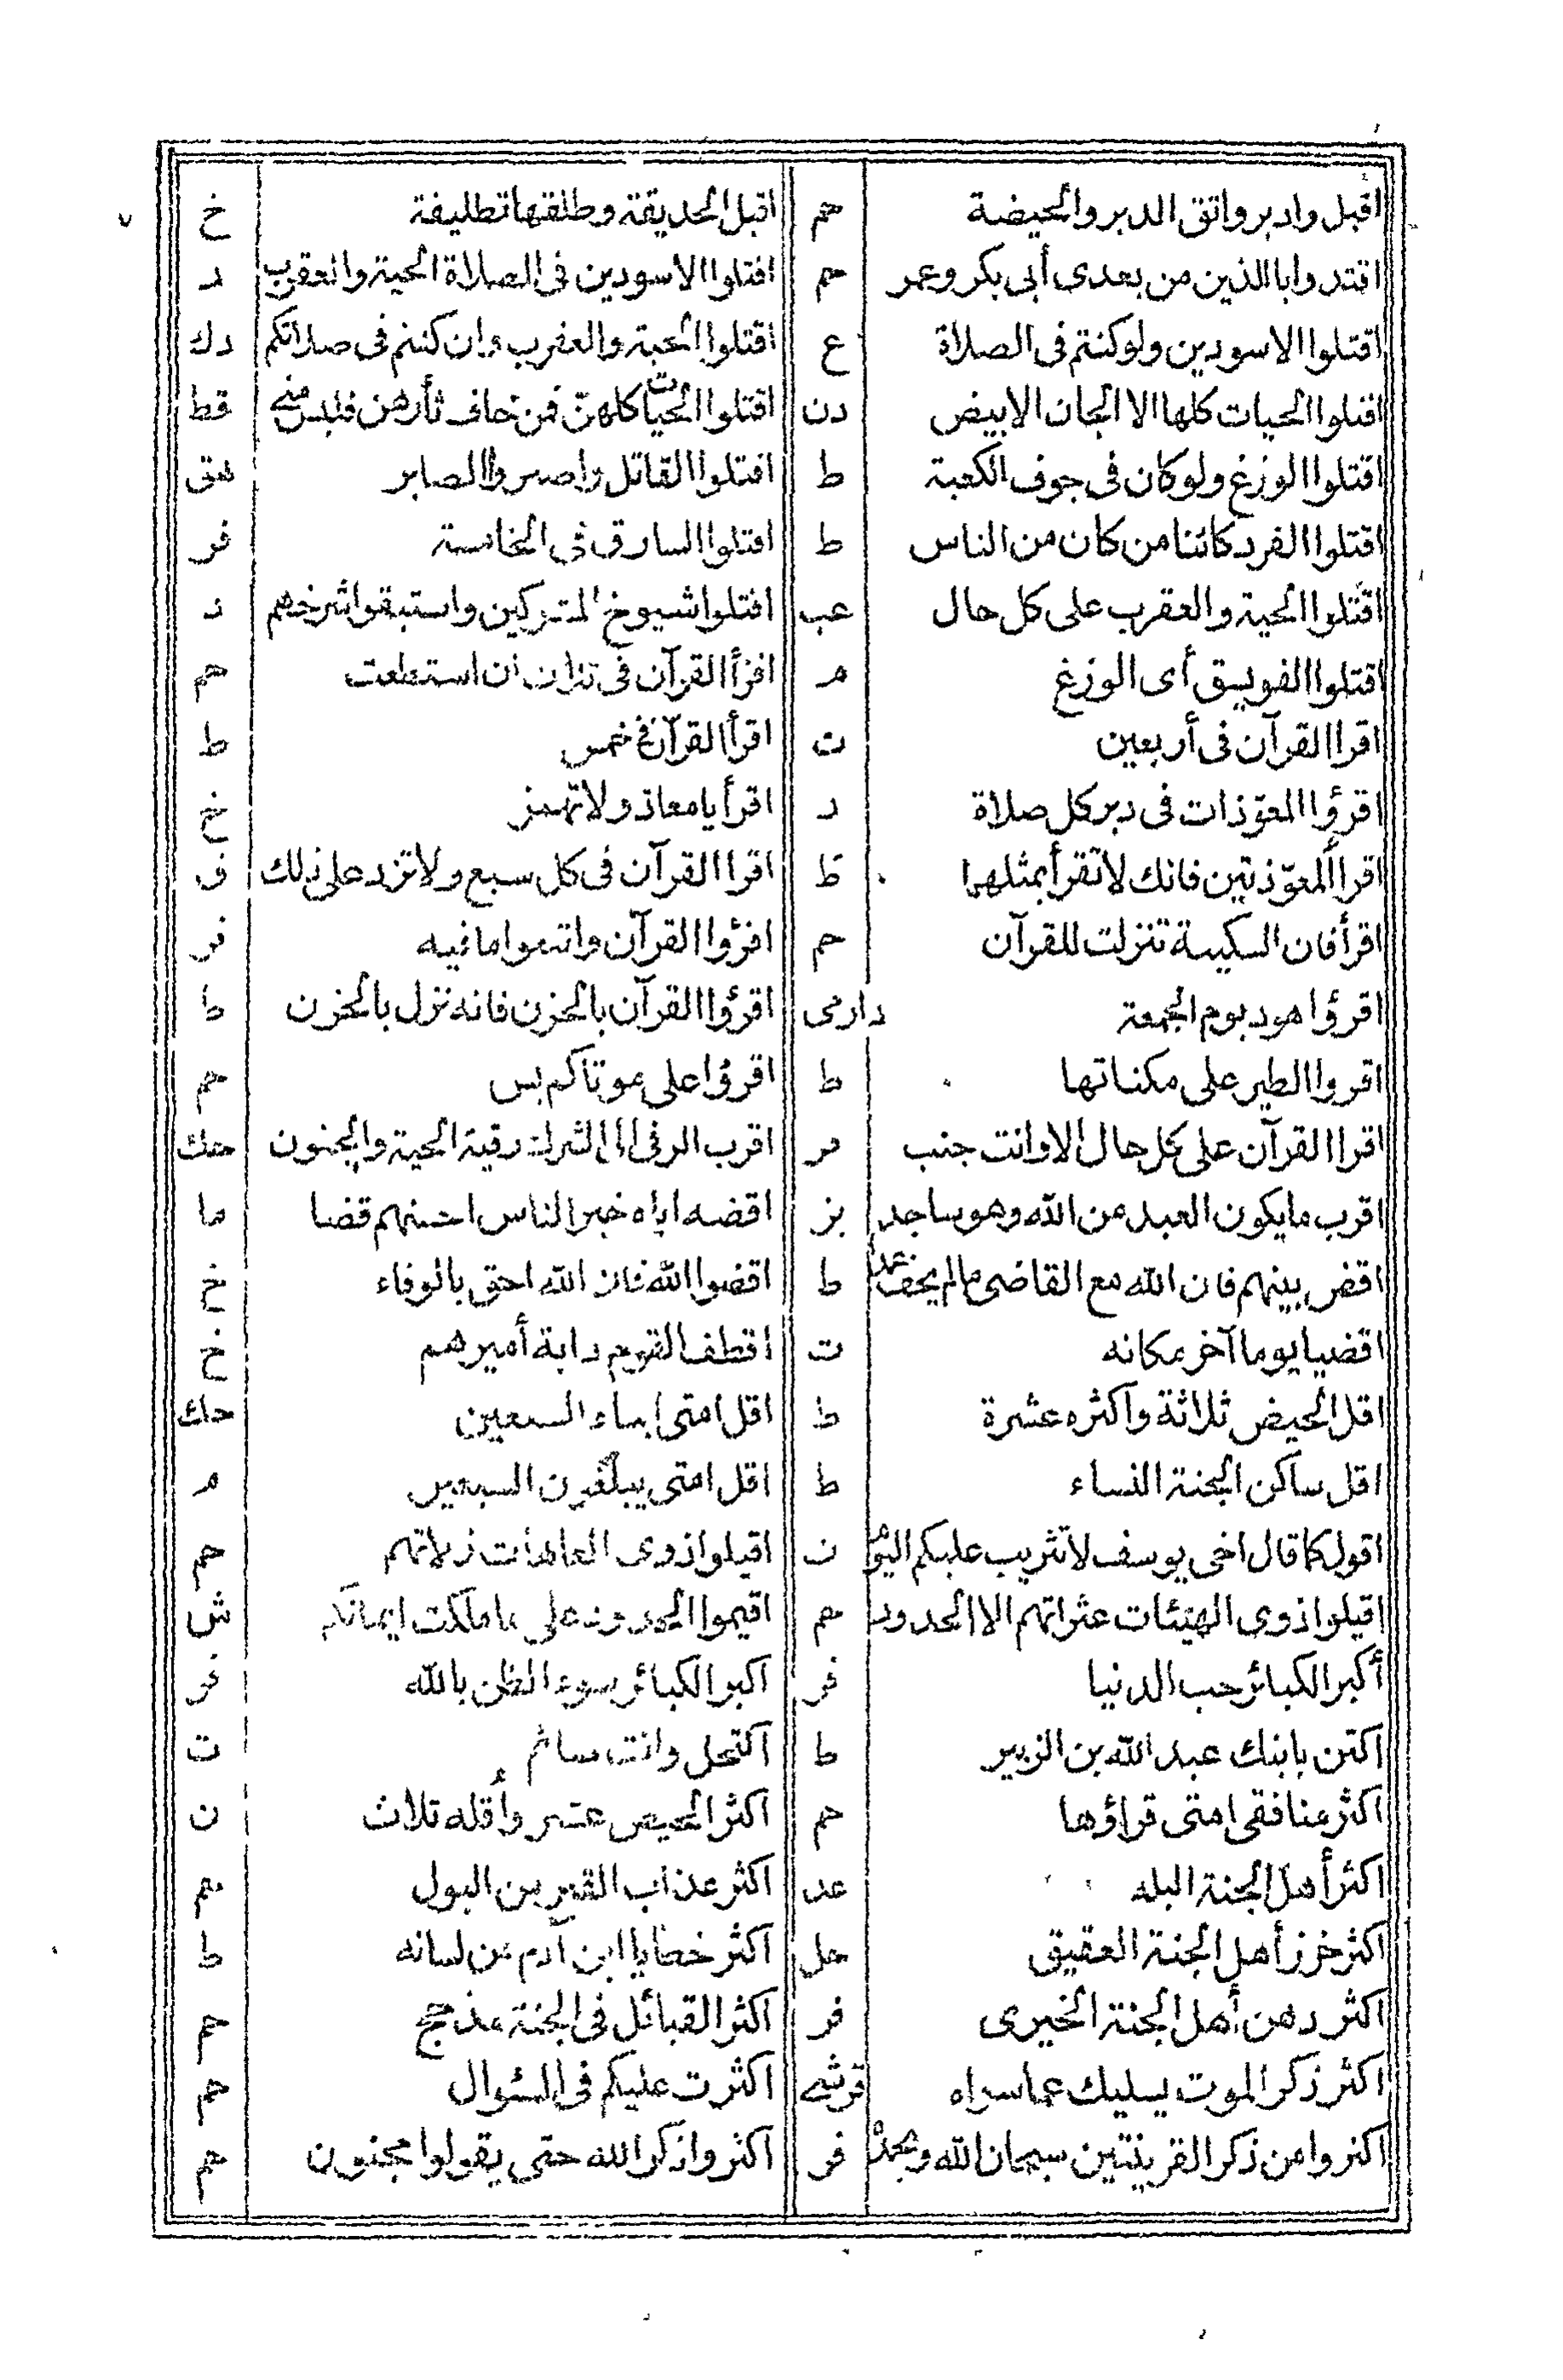 اقبل وادبر واتق الدبر والحيضة حم اقبل الحديقة وطلقها تطليقة خ
اقتدوا بالذين من بعدى أبى بكر وعمر حم اقتلوا الاسودين فى الصلاة الحية والعقرب د
اقتلوا الاسودين ولو كنتم فى الصلاة ع اقتلوا الحية والعقرب وان كنتم فى صلاتكم دك
اقتلوا الحيات كلها الا الجان الابيض دن اقتلوا الحيات كلهنّ فمن خاف ثأرهن فليس منى قط
اقتلوا الوزغ ولو كان فى جوف الكعبة ط اقتلوا القاتل واصبروا الصابر هق
اقتلوا الفرد كائنا من كان من الناس ط اقتلوا السارق فى الخامسة فر
اقتلوا الحية والعقرب على كل حال عب اقتلوا شيوخ المشركين واستبقوا شرخهم د
اقتلوا الفويسق أى الوزغ م اقرأ القرآن فى ثلاث ان استطعت حم
اقرا القرآن فى أربعين ت اقرأ القرآن فى خمس ط
اقرؤا المعوّذات فى دبر كل صلاة د اقرأ يا معاذ ولا تهمز خ
اقرا المعوّذتين فانك لا تقرأ بمثلهما ط اقرا القرآن فى كل سبع ولا تزد على ذلك ق
اقرأ فان السكينة تنزلت للقرآن حم اقرؤا القرآن واتبعوا ما فيه فر
اقرؤا هود يوم الجمعة دارمى اقرؤا القرآن بالحزن فانه نزل بالحزن ط
اقروا الطير على مكناتها ط اقرؤا على موتاكم يس حم
اقرا القرآن على كل حال الا وانت جنب مر اقرب الرقى الى الشرك رقية الحية والجنون حك
اقرب ما يكون العبد من الله وهو ساجد بز اقضه اياه خير الناس احسنهم قضا ما
اقض بينهم فان الله مع القاضى ما لم يحف عمدا ط اقضوا الله فان الله احق بالوفاء خ
اقضيا يوما آخر مكانه ت اقطف القوم دابة أميرهم خ
اقل الحيض ثلاثة واكثره عشرة ط اقل امتى ابناء السبعين حك
اقل ساكن الجنة النساء ط اقل امتى يبلغون السبعين م
اقول كما قال اخى يوسف لا تثريب عليكم اليوم ن اقيلوا ذوى الهاهات زلاتهم حم
اقيلوا ذوى الهيئات عثراتهم الا الحدود حم اقيموا الحدود على ما ملكت ايمانكم ش
أكبر الكبائر حب الدنيا فر اكبر الكبائر سوء الظن بالله فر
اكتن بابنك عبد الله بن الزبير ط اكتحل وانت صائم ت
اكثر منافقى امتى قراؤها حم اكثر الحيض عشر وأقله ثلاث ن
اكثر أهل الجنة البله عد اكثر عذاب القبر من البول حم
اكثر خرز أهل الجنة العقيق حل اكثر خطايا ابن آدم من لسانه ط
اكثر دهن أهل الجنة الخيرى فر اكثر القبائل فى الجنة مذحج حم
اكثر ذكر الموت يسليك عما سواه قرشى اكثرت عليكم فى السؤال حم
اكثروا من ذكر القرينتين سبحان الله وبحمده فر اكثروا ذكر الله حتى يقولوا مجنون حم